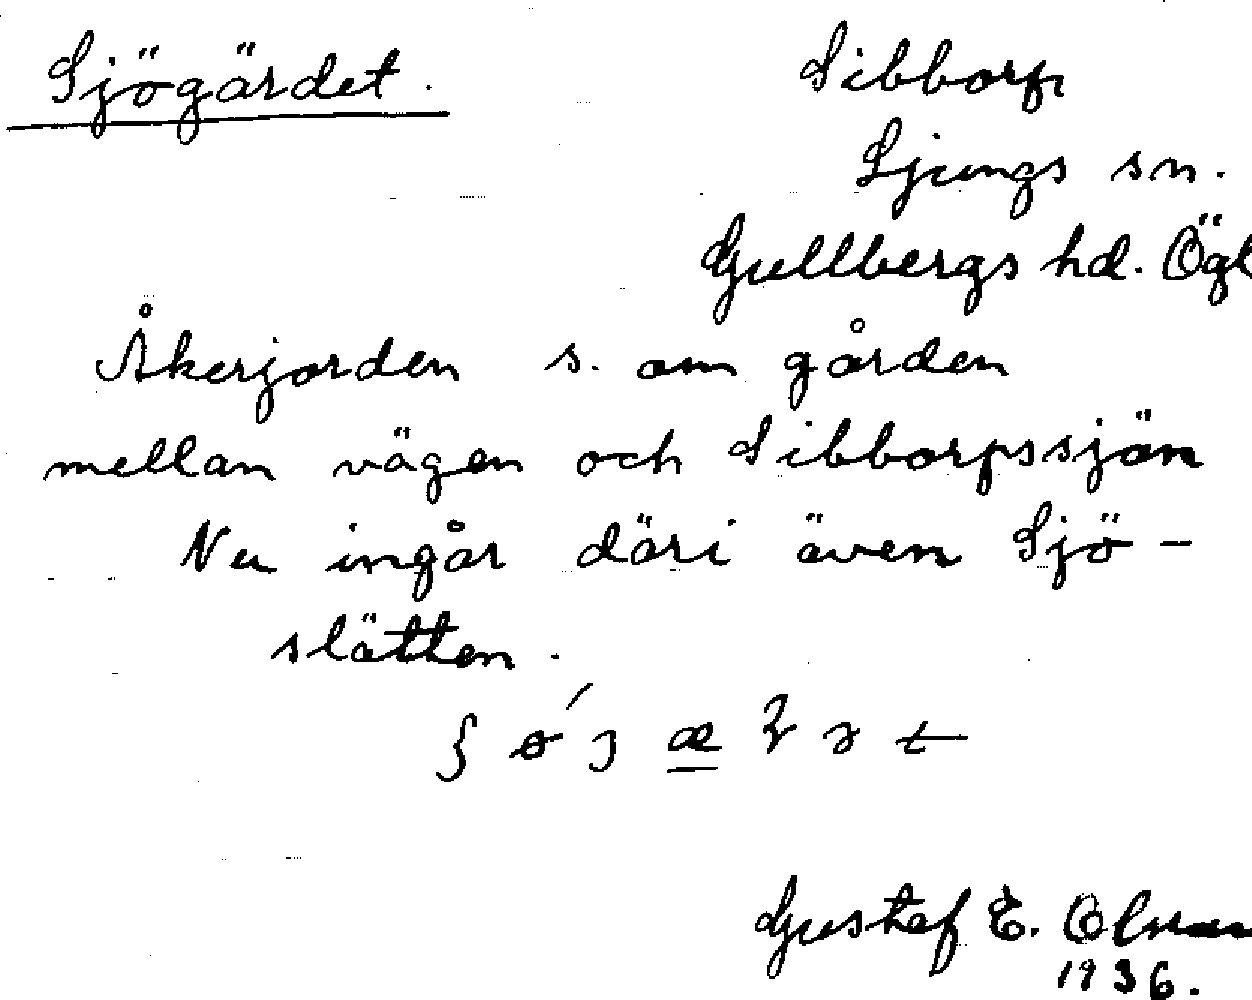 Sjögärdet.
Sibborp
Ljungs sn.
Gullbergs hd. Ögl
Åkerjorden s. om gården
mellan vägen och Sibborpssjön
Nu ingår däri även Sjö-
slätten.
Gustaf E.
1936.